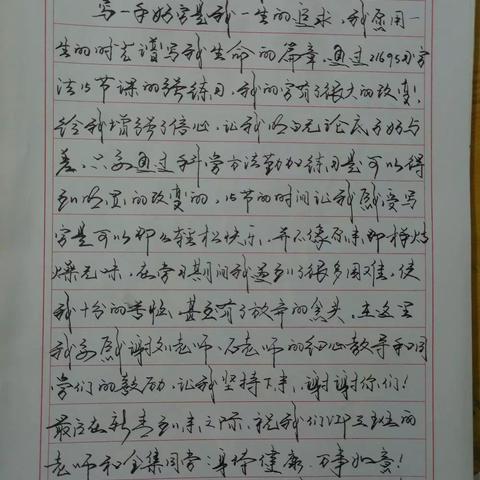 写一手好字是我一生的追求,我愿用一
生的时光谱写我生命的篇章。通过21695习字
法15节课的强练习,我的字有了很大的改变,
给我增强了信心,让我明白无论底子好与
差,只要通过科学方法勤加练习是可以得
到明显的改变的,15节的时间让我感受写
字是可以那么轻松快乐,并不像原来那样枯
燥无味,在学习期间我遇到了很多困难,使
我十分的苦恼,甚至有了放弃的念头,在这里
我要感谢刘老师、石老师的细心教导和同
学们的鼓励,让我坚持下来,谢谢你们!
最后在新春到来之际,祝我们江班的
老师和全集同学:身体健康,万事如意!